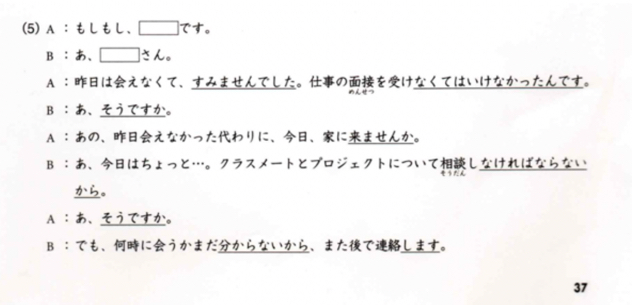 (5) A：もしもし、□です。
B：あ、□さん。
A：昨日は会えなくて、すみませんでした。仕事の面接を受けなくてはいけなかったんです。
めんせつ
B：あ、そうですか。
A：あの、昨日会えなかった代わりに、今日、家に来ませんか。
B：あ、今日はちょっと…。クラスメートとプロジェクトについて相談しなければならない
そうだん
から。
A：あ、そうですか。
B：でも、何時に会うかまだ分からないから、また後で連絡します。
37